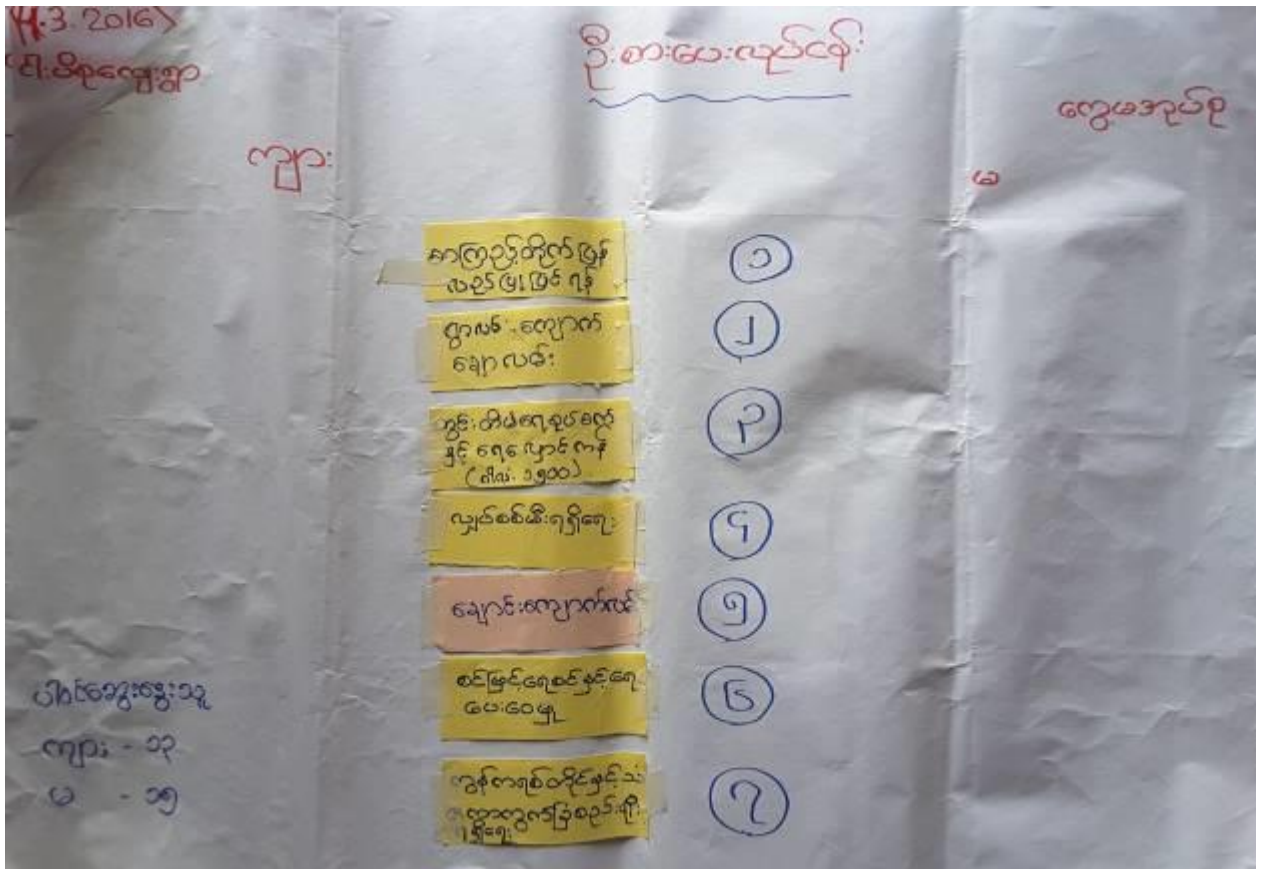 (4.3.2016)
ဦးစားပေးလုပ်ငန်း
ကျေးမအုပ်စု
ကျား
မ
စာကြည့်တိုက်ပြန်
လည်ပြုပြင်ရန်
၁
ရွာလမ်း ကျောက်
ချောလမ်း
၂
တွင်းတိမ်ရေစုပ်စက်
နှင့် ရေလှောင်ကန်
(ဂါလံ. ၁၅၀၀)
၃
လျှပ်စစ်မီးရရှိရေး
၄
ချောင်းကျောက်လမ်း
၅
စင်မြင့်ရေစင်နှင့်ရေ
ပေးဝေမှု
၆
ကွန်ကရစ်တိုင်နှင့်သံ
ဆူးကြိုးခြံစည်းရိုး
ရရှိရေး
၇
ပါဝင်ဆွေးနွေးသူ
ကျား - ၁၃
မ - ၁၅